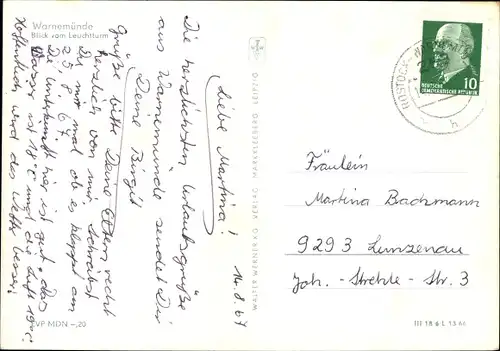 Warnemünde
Blick vom Leuchtturm
14.8.67
Liebe Martina!
Die herzlichsten Urlaubsgrüße
aus Warnemünde sendet Dir
Deine Birgit
Grüße bitte Deine Eltern recht
herzlich von mir. Schreibst
Du mir mal ob es klappt am
25.8.67.
Die Unterkunft hier ist gut, das
Wasser ist 18°C und die Luft 19°C.
Hoffentlich wird das Wetter besser.
EVP MDN -,20
WALTER WARNER KG · VERLAG · MARKKLEEBERG · LEIPZIG
ROSTOCK-WARNEMÜNDE
10
DEUTSCHE
DEMOKRATISCHE REPUBLIK
Fräulein
Martina Bachmann
9293 Lunzenau
Joh.-Strehle-Str. 3
III 18 6 L 13 66